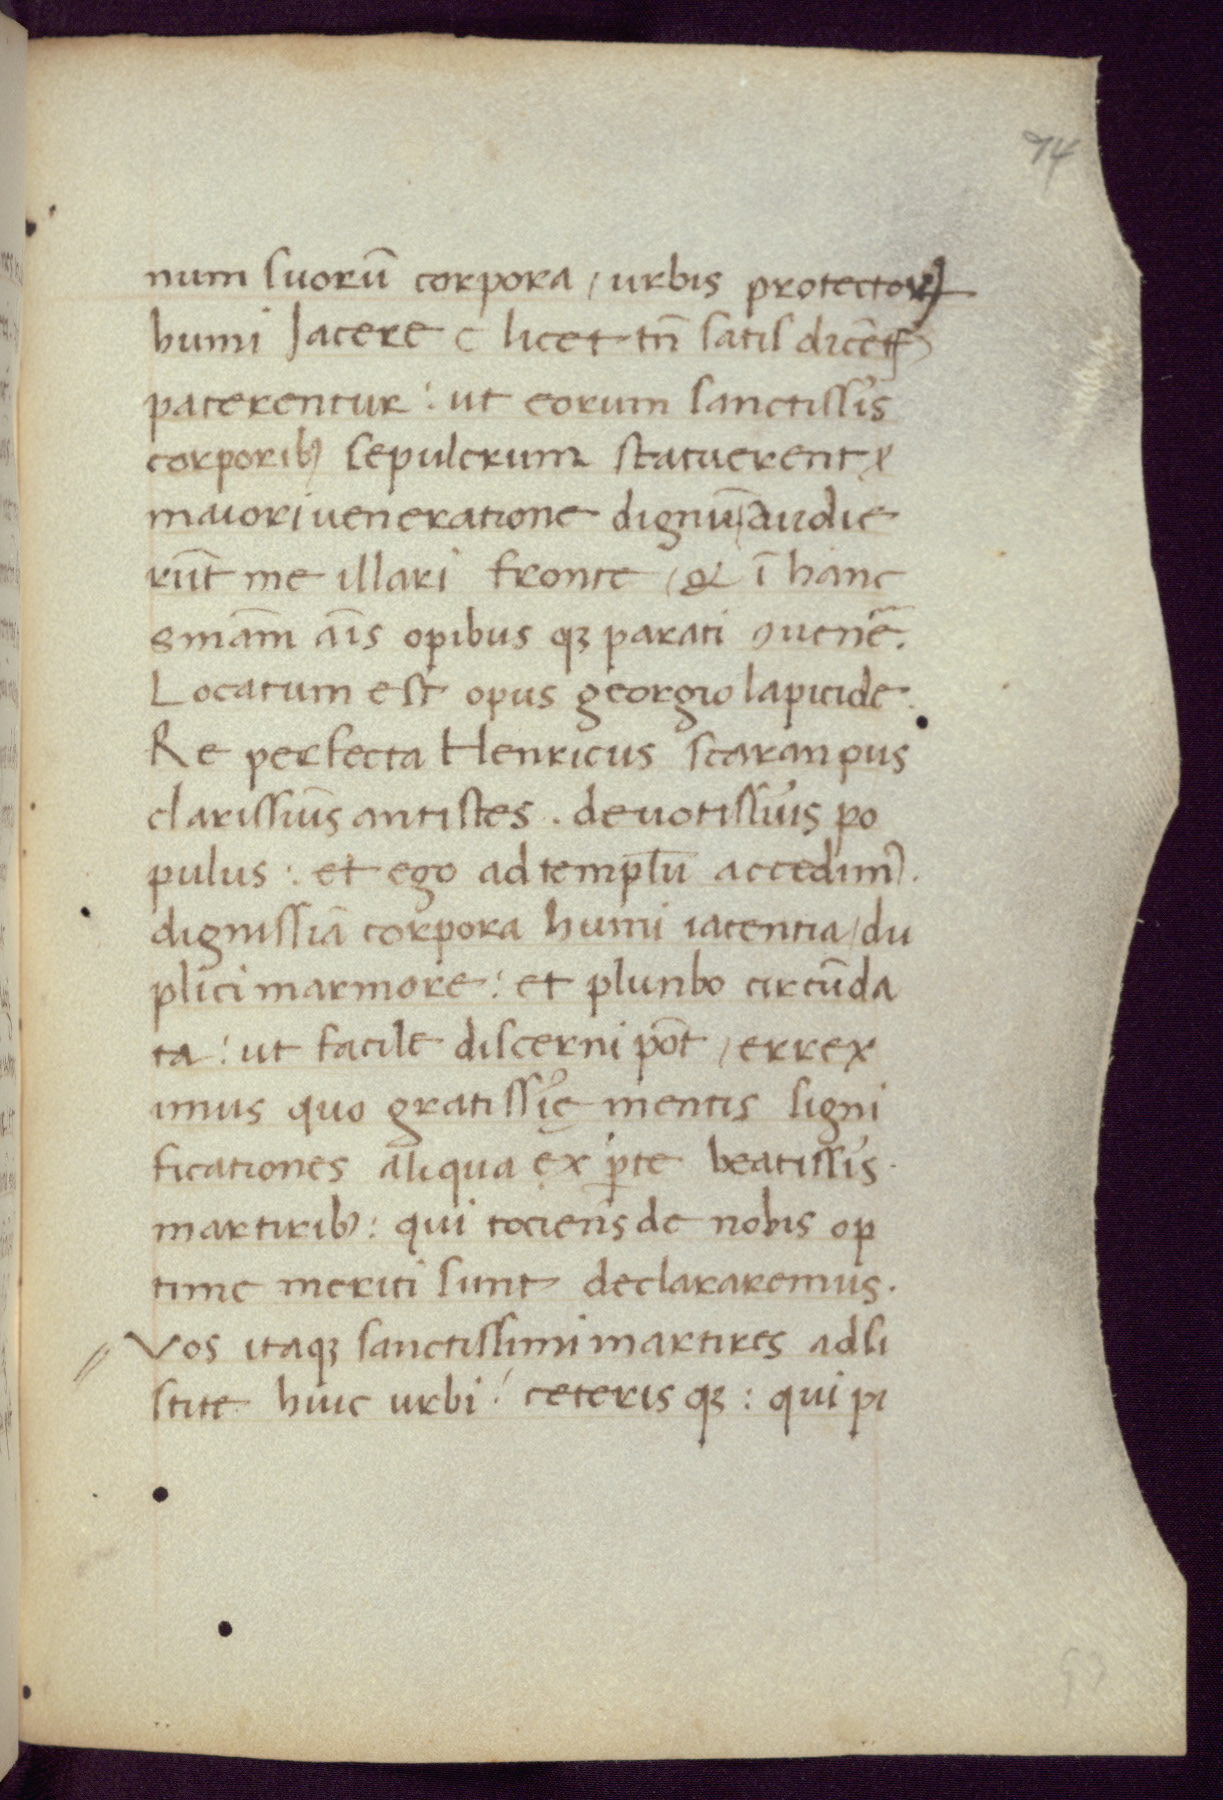 74
num suorū corpora / urbis protectoꝝ
humi Jacere licet tn̄ satis
paterentur : ut eorum sanctissīs
corporibꝰ sepulcrum statuerent
maiori ueneratione dignū / audie
rūt me illari fronte / & ī hanc
smām aīs opibus qꝫ parati ꝯuenē.
Locatum est opus georgio lapicide.
Re perfecta Henricus scaranpus
clarissiūs antistes . deuotissiūs po
pulus : et ego ad templū accedimꝰ.
dignissiā corpora humi iacentia / du
plici marmore : et plunbo circūda
ta : ut facile discerni pōt / errex
imus quo gratissīę mentis signi
ficationes aliqua ex ꝑte beatissīs
martiribꝰ : qui tociens de nobis op
time meriti sunt declararemus.
Vos itaqꝫ sanctissimi martires adsi
stite huic urbi : ceteris qꝫ : qui pi